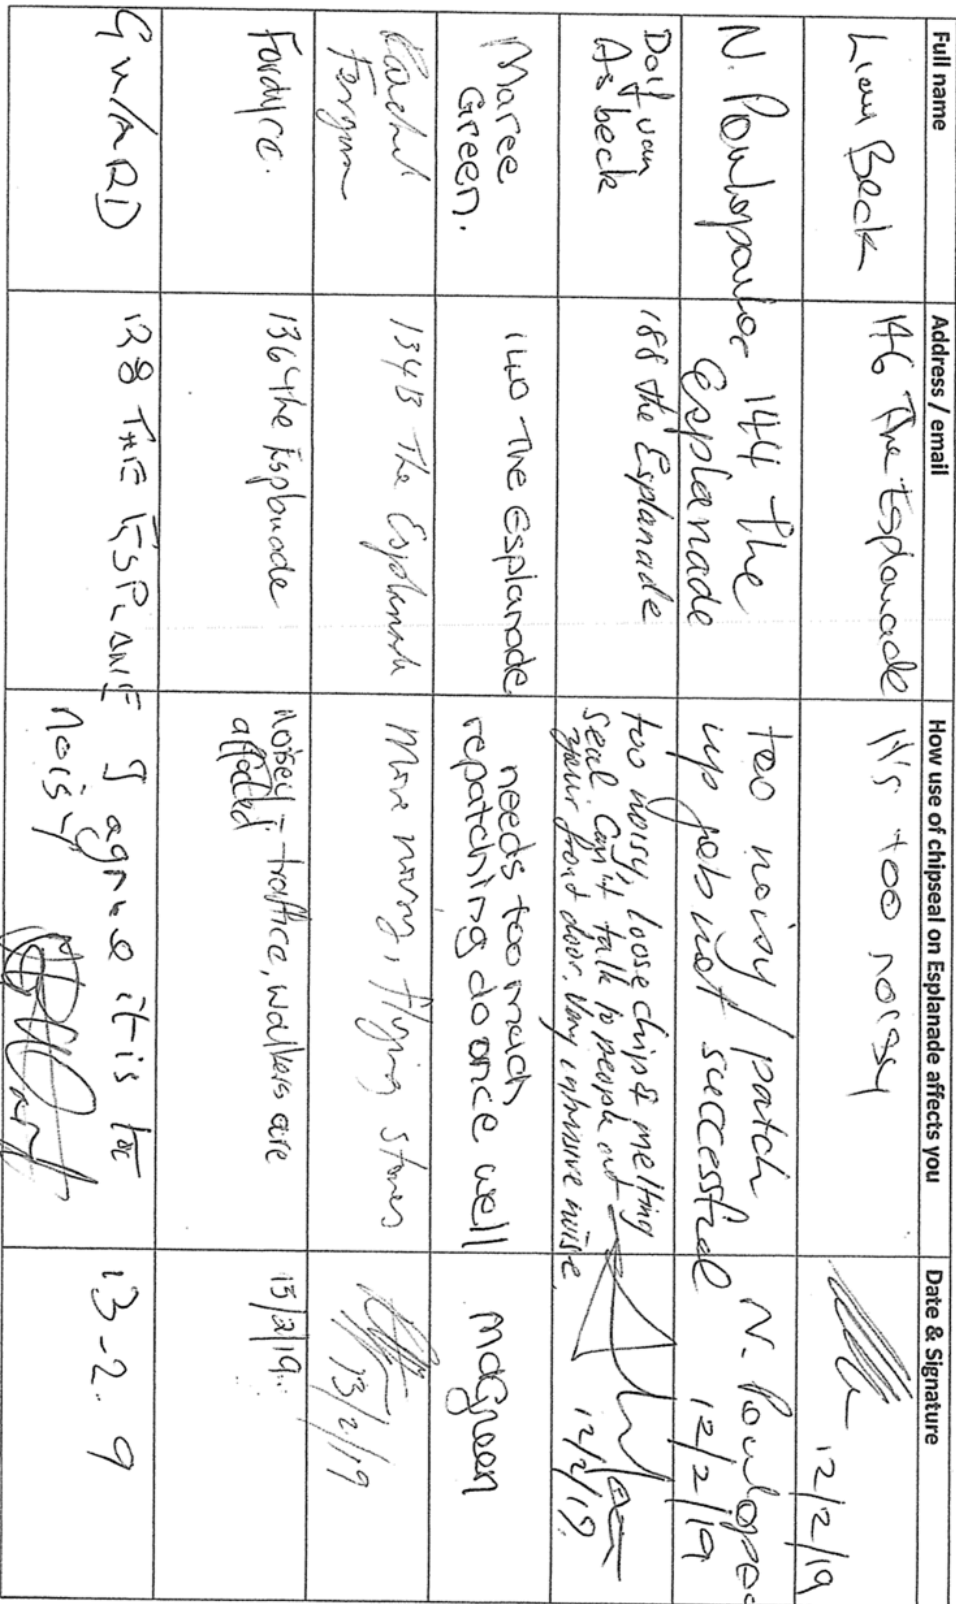 Full name
Address / email
How use of chipseal on Esplanade affects you
Date & Signature
Liam Beck
146 The Esplanade
it's too noisy
12/2/19
N.
144 The
Esplanade
too noisy / patch
up job not successful
N.
12/2/19
Dolf van
Asbeck
188 the Esplanade
too noisy, loose chips & melting
seal. Can't talk to people out
your front door. Very intrusive noise.
12/2/19
Maree
Green.
140 The Esplanade.
needs too much
repatching do once well
MdGreen
Rachel
Ferguson
134B The Esplanade
More noisy, flying stones
13/2/19
Fordyce.
136 The Esplanade
noisey - traffice, walkers are
affected
13/2/19.
128 THE ESPLANE
I agree it is too
noisy
13-2.9